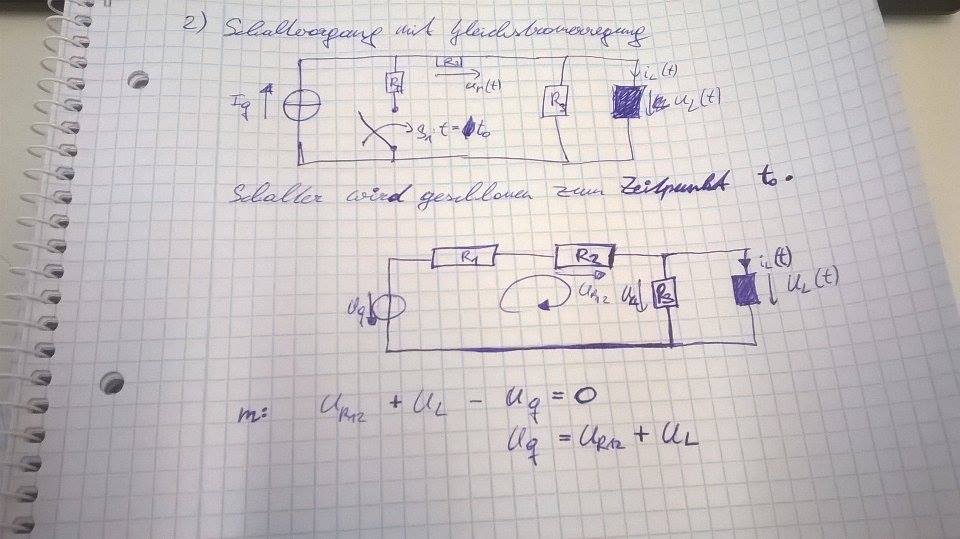 2) Schaltvorgang mit Gleichstromerregung
Iq
R1
uR(t)
R3
iL(t)
uL(t)
S1 t = t0
Schalter wird geschlossen zum Zeitpunkt t0.
R1
R2
iL(t)
Uq
UR12
R3
UL(t)
m: UR12 + UL - Uq = 0
Uq = UR12 + UL